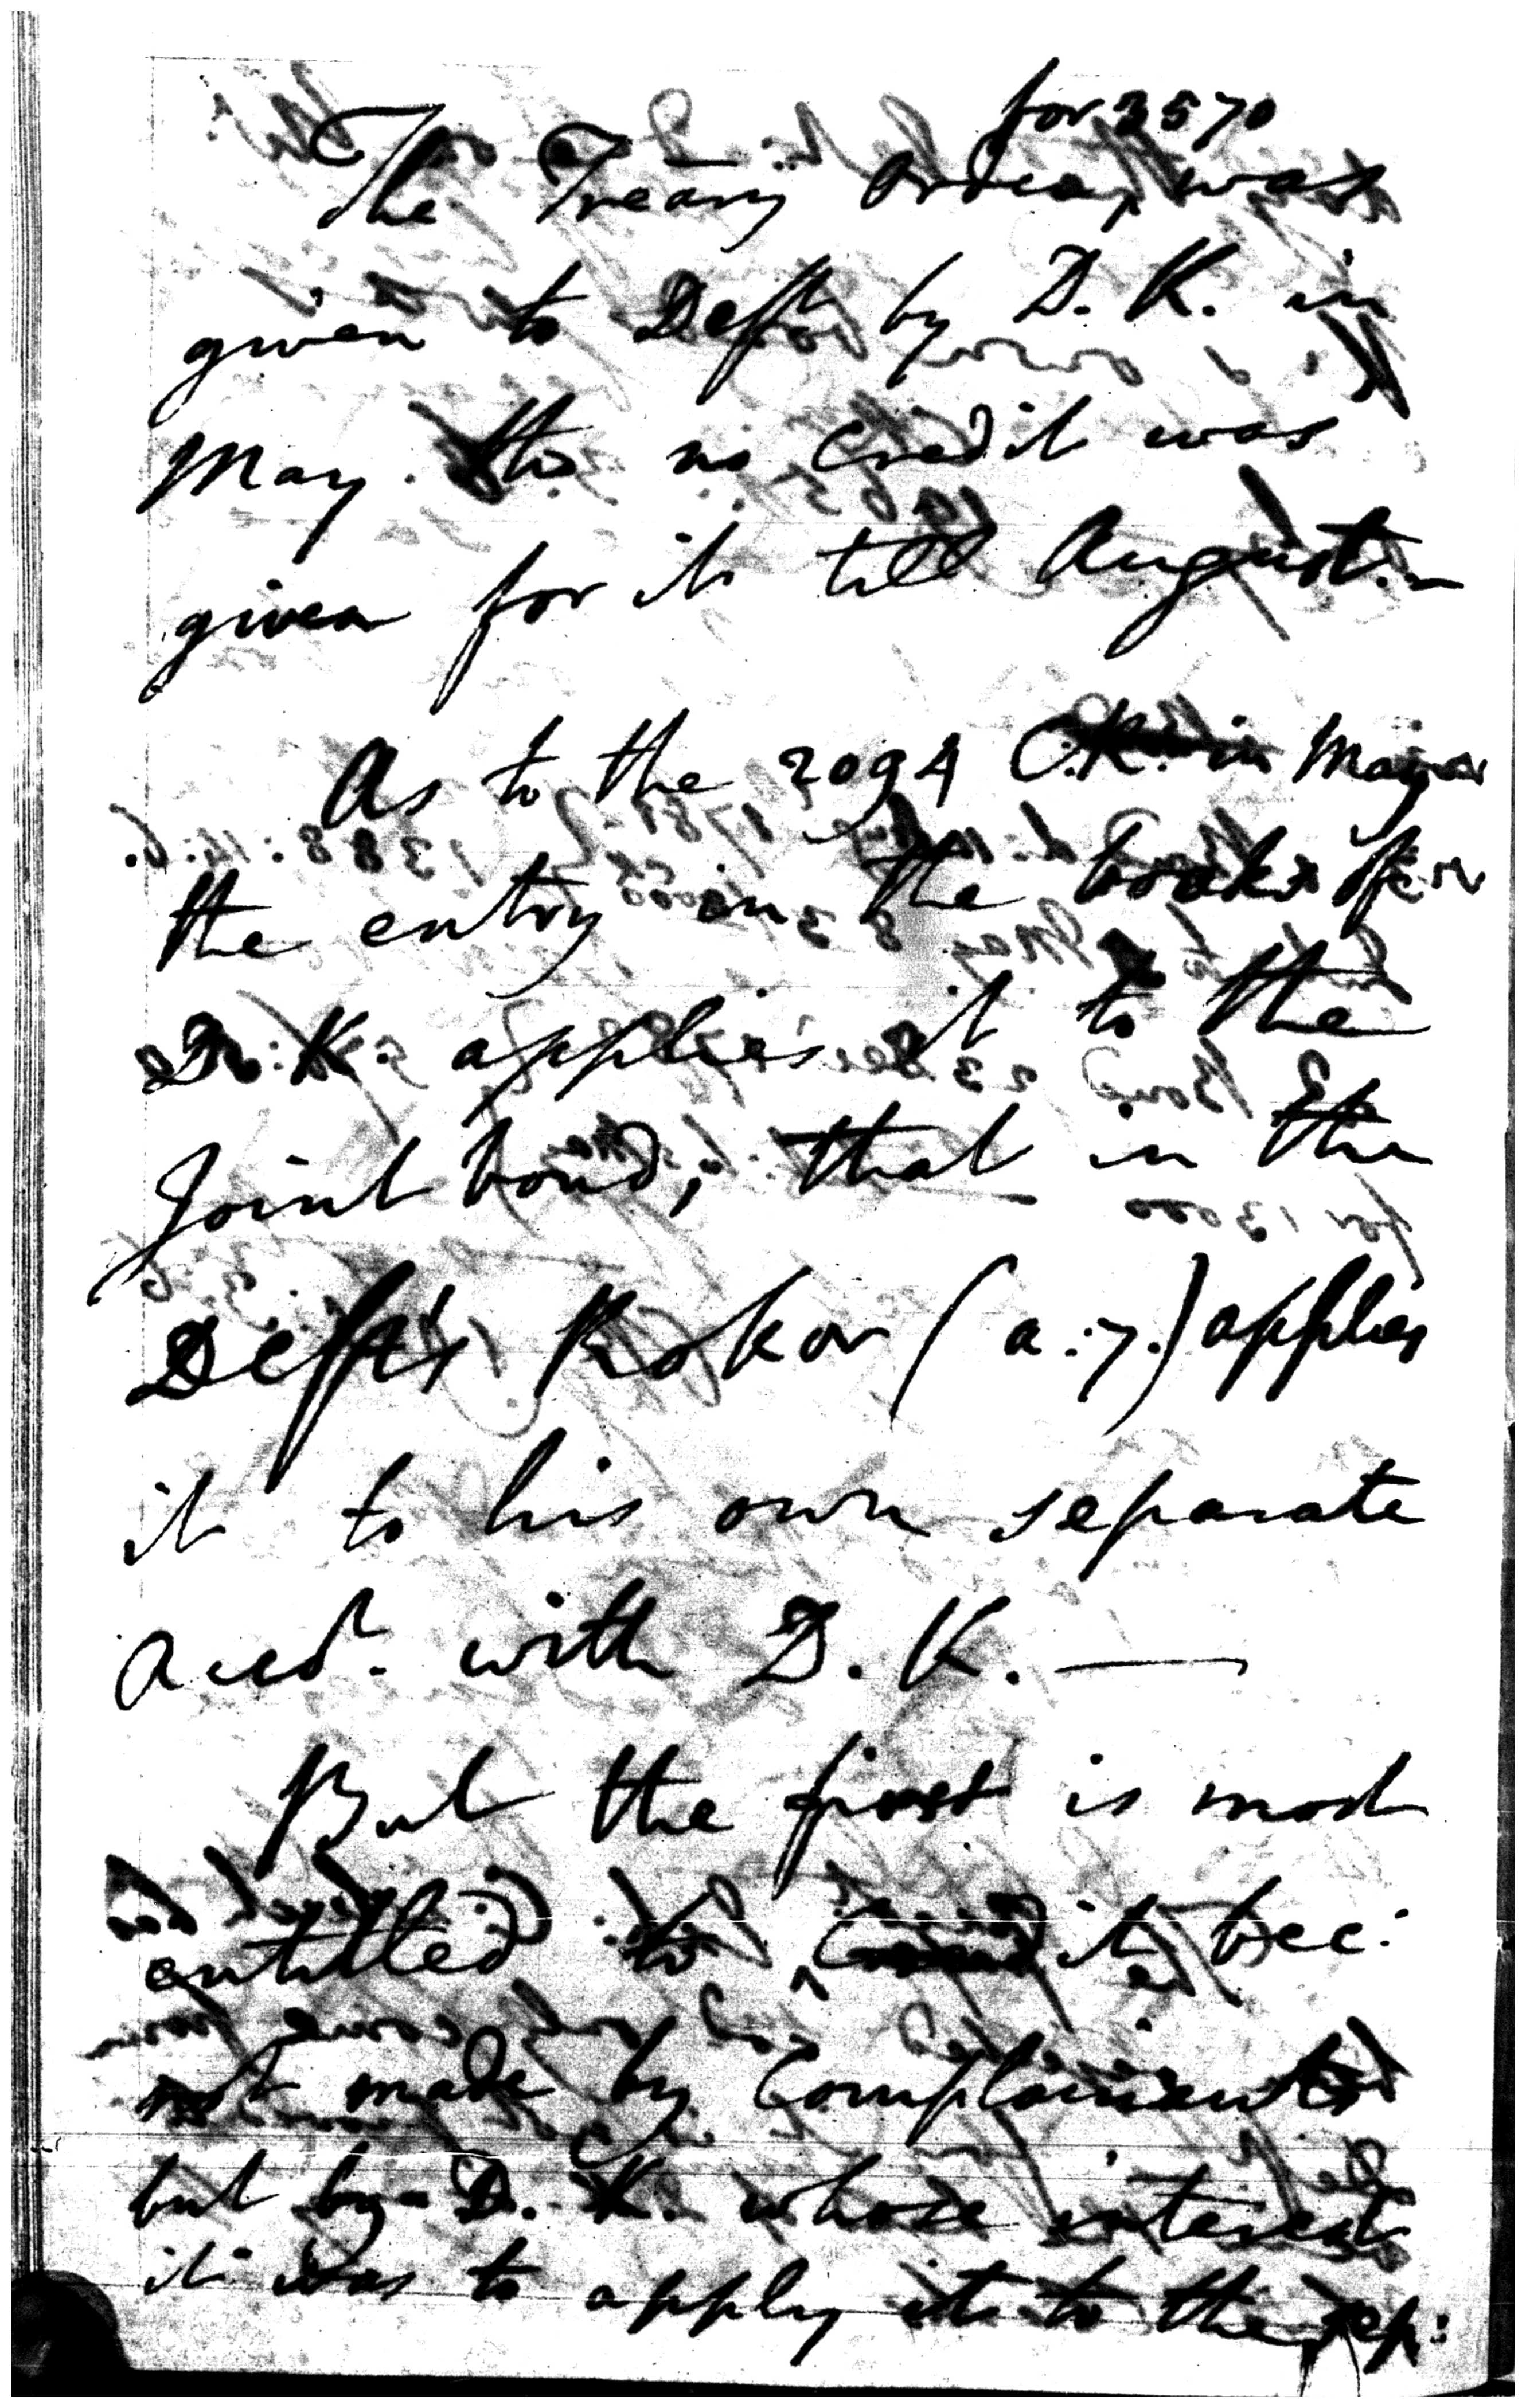 for 3570
The Treãry order, was
given to Deft by D. K. in
May. tho no credit was
given for it till August. –
As to the 2094 C.R. in May
the entry in the books of
D. K. applies it to the
Joint bond, that in the
Deft's Rokor (a. 7.) applies
it to his own separate
Accot. with D. K. —
But the first is most
entitled to it bec:
not made by Complainants
but by D. K. whose interest
it was to apply it to the sep: